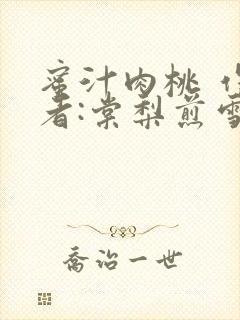 蜜汁肉桃 作
者:棠梨煎雪
乔治一世